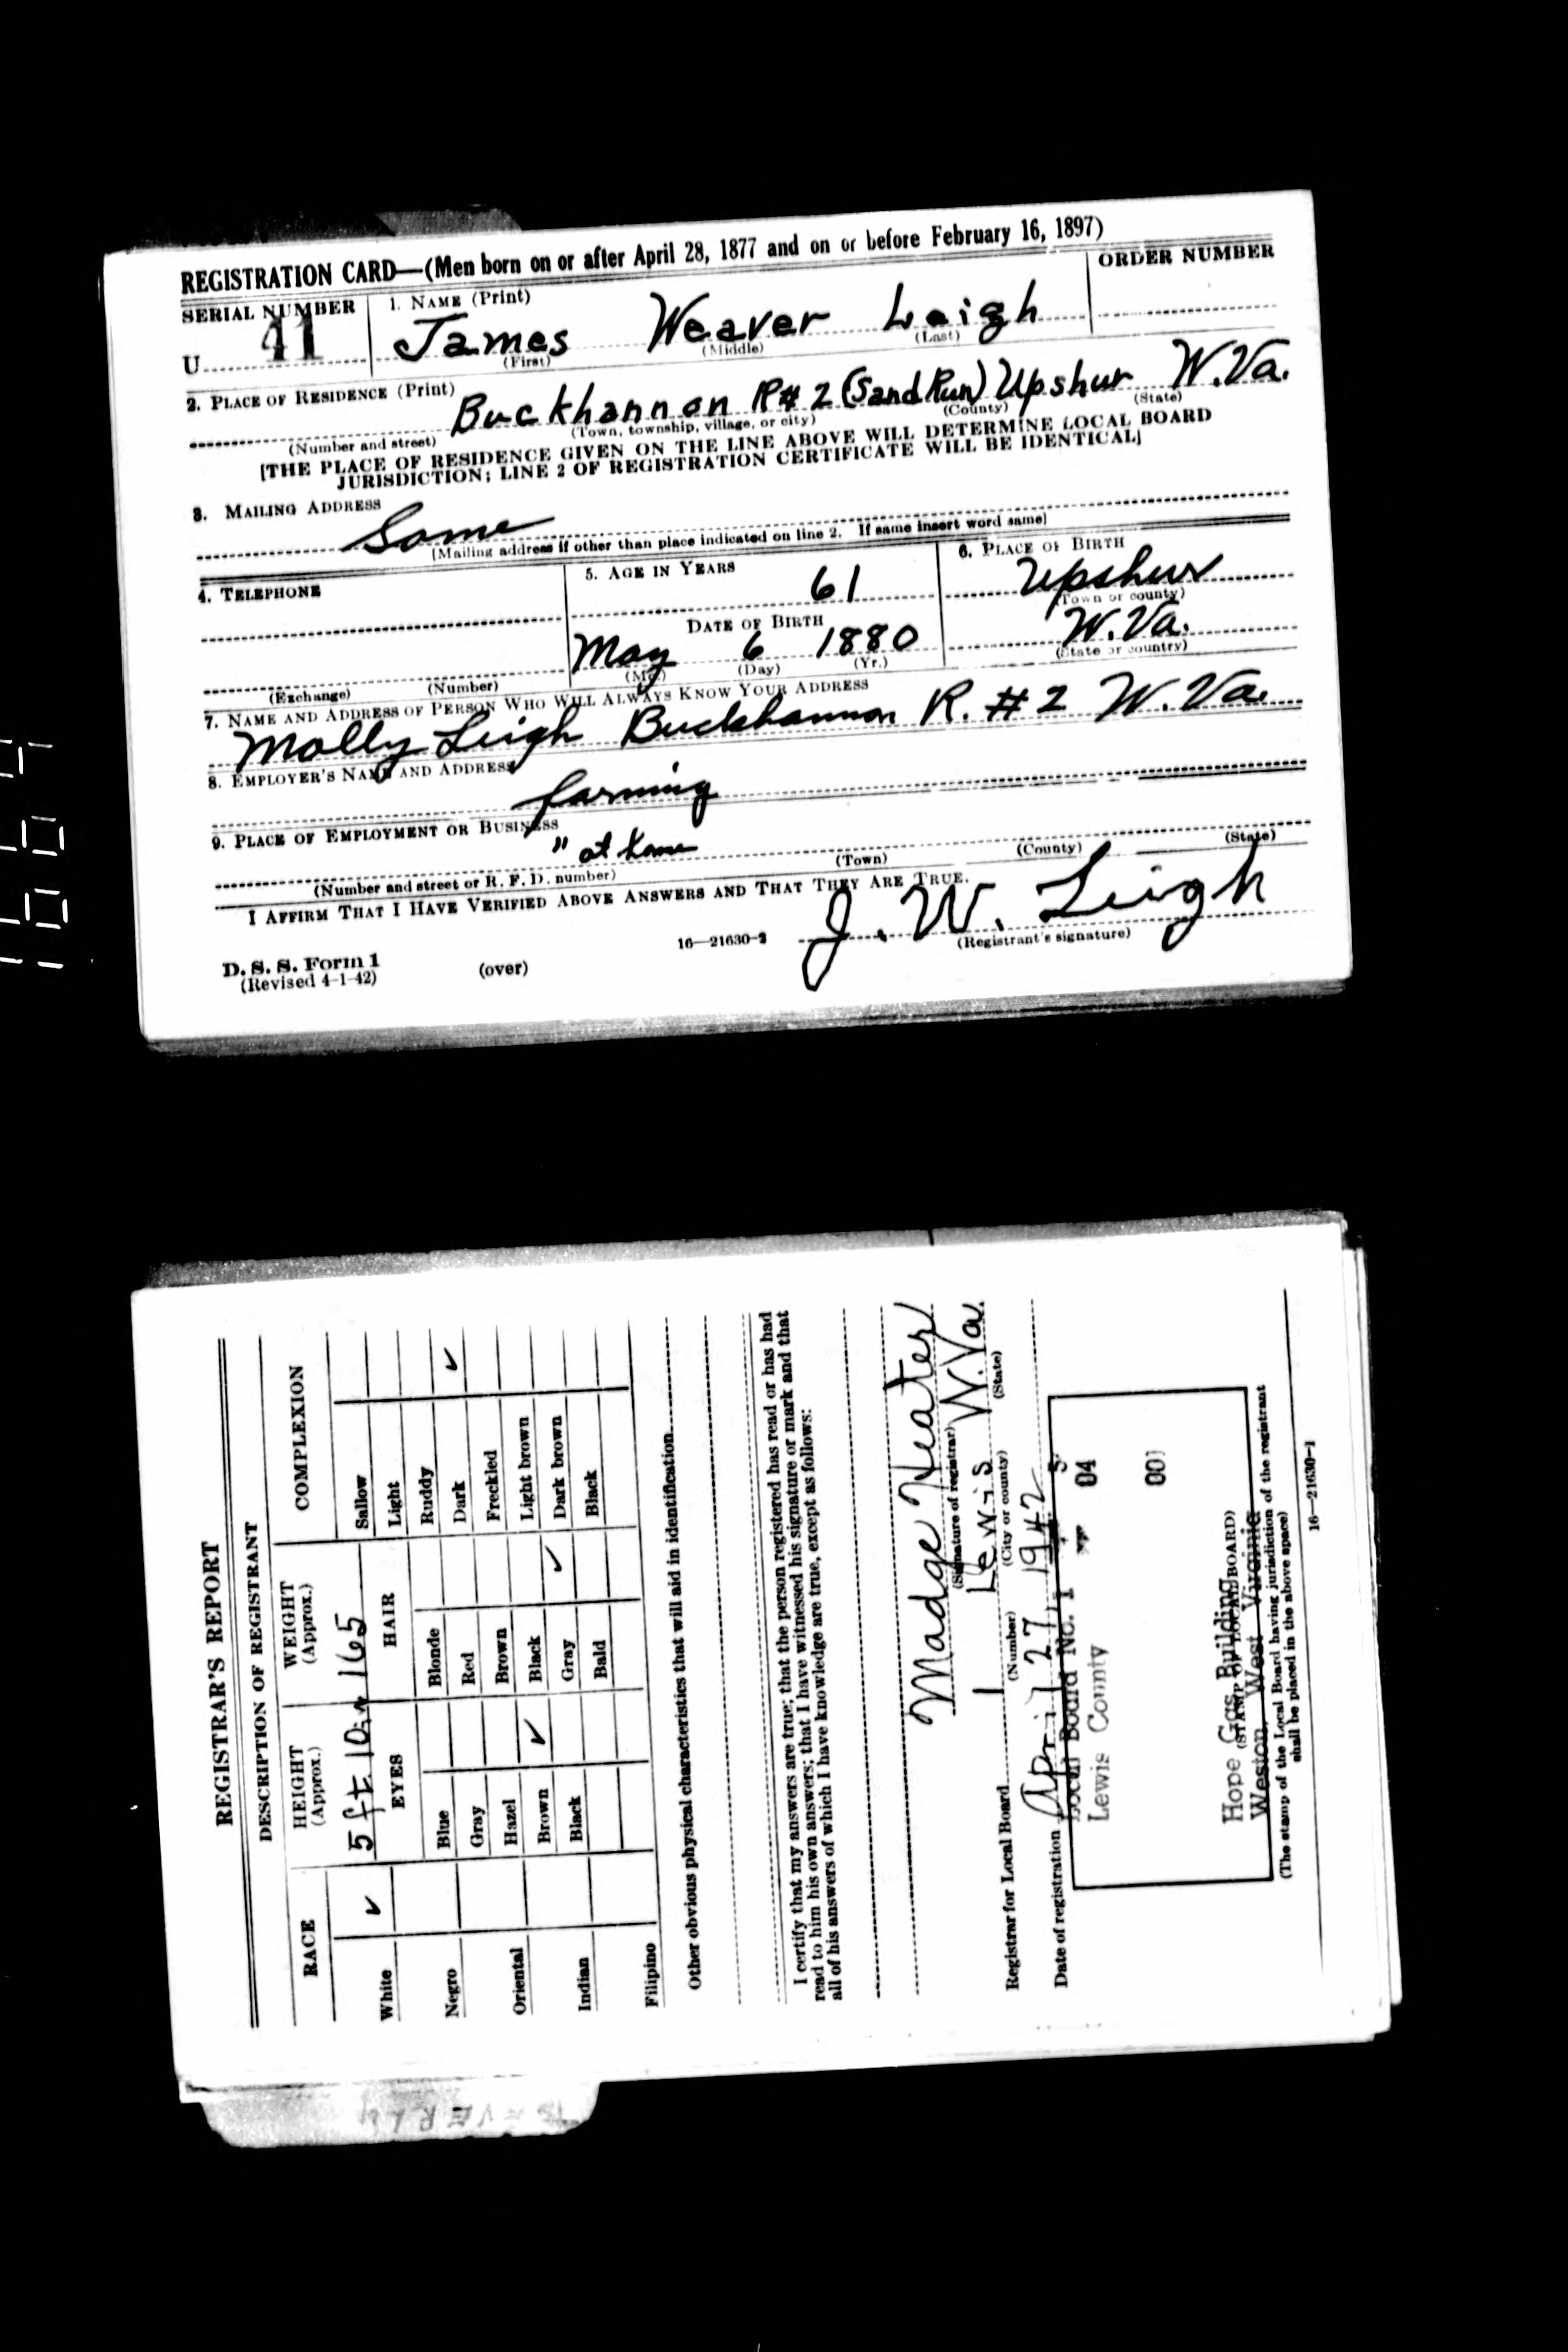 REGISTRATION CARD—(Men born on or after April 28, 1877 and on or before February 16, 1897)
SERIAL NUMBER 1. NAME (Print) ORDER NUMBER
U 41 James Weaver Leigh
(First) (Middle) (Last)
2. PLACE OF RESIDENCE (Print)
Buckhannon R#2 (Sand Run) Upshur W.Va.
(Number and street) (Town, township, village, or city) (County) (State)
[THE PLACE OF RESIDENCE GIVEN ON THE LINE ABOVE WILL DETERMINE LOCAL BOARD
JURISDICTION; LINE 2 OF REGISTRATION CERTIFICATE WILL BE IDENTICAL]
3. MAILING ADDRESS
Same
[Mailing address if other than place indicated on line 2. If same insert word same]
4. TELEPHONE 5. AGE IN YEARS 6. PLACE OF BIRTH
61 Upshur
(Town or county)
DATE OF BIRTH
May 6 1880 W.Va.
(Exchange) (Number) (Mo.) (Day) (Yr.) (State or country)
7. NAME AND ADDRESS OF PERSON WHO WILL ALWAYS KNOW YOUR ADDRESS
Molly Leigh Buckhannon R. #2 W.Va.
8. EMPLOYER'S NAME AND ADDRESS
farming
9. PLACE OF EMPLOYMENT OR BUSINESS
" at home
(Number and street or R. F. D. number) (Town) (County) (State)
I AFFIRM THAT I HAVE VERIFIED ABOVE ANSWERS AND THAT THEY ARE TRUE.
J. W. Leigh
D. S. S. Form 1 16—21630-2 (Registrant's signature)
(Revised 4-1-42) (over)
REGISTRAR'S REPORT
DESCRIPTION OF REGISTRANT
RACE HEIGHT (Approx.) WEIGHT (Approx.) COMPLEXION
White ✓ 5 ft. 10 in 165 Sallow
EYES HAIR Light
Negro Blue Blonde Ruddy
Gray Red Dark ✓
Oriental Hazel Brown Freckled
Brown ✓ Black Light brown
Indian Black Gray ✓ Dark brown
Bald Black
Filipino
Other obvious physical characteristics that will aid in identification
I certify that my answers are true; that the person registered has read or has had
read to him his own answers; that I have witnessed his signature or mark and that
all of his answers of which I have knowledge are true, except as follows:
Madge Heater
(Signature of registrar)
Registrar for Local Board 1 Lewis W.Va.
(Number) (City or county) (State)
Date of registration April 27 1942
Local Board No. 1
Lewis County 04
001
Hope Gas Building
(STAMP OF LOCAL BOARD)
Weston, West Virginia
(The stamp of the Local Board having jurisdiction of the registrant
shall be placed in the above space)
16—21630-1